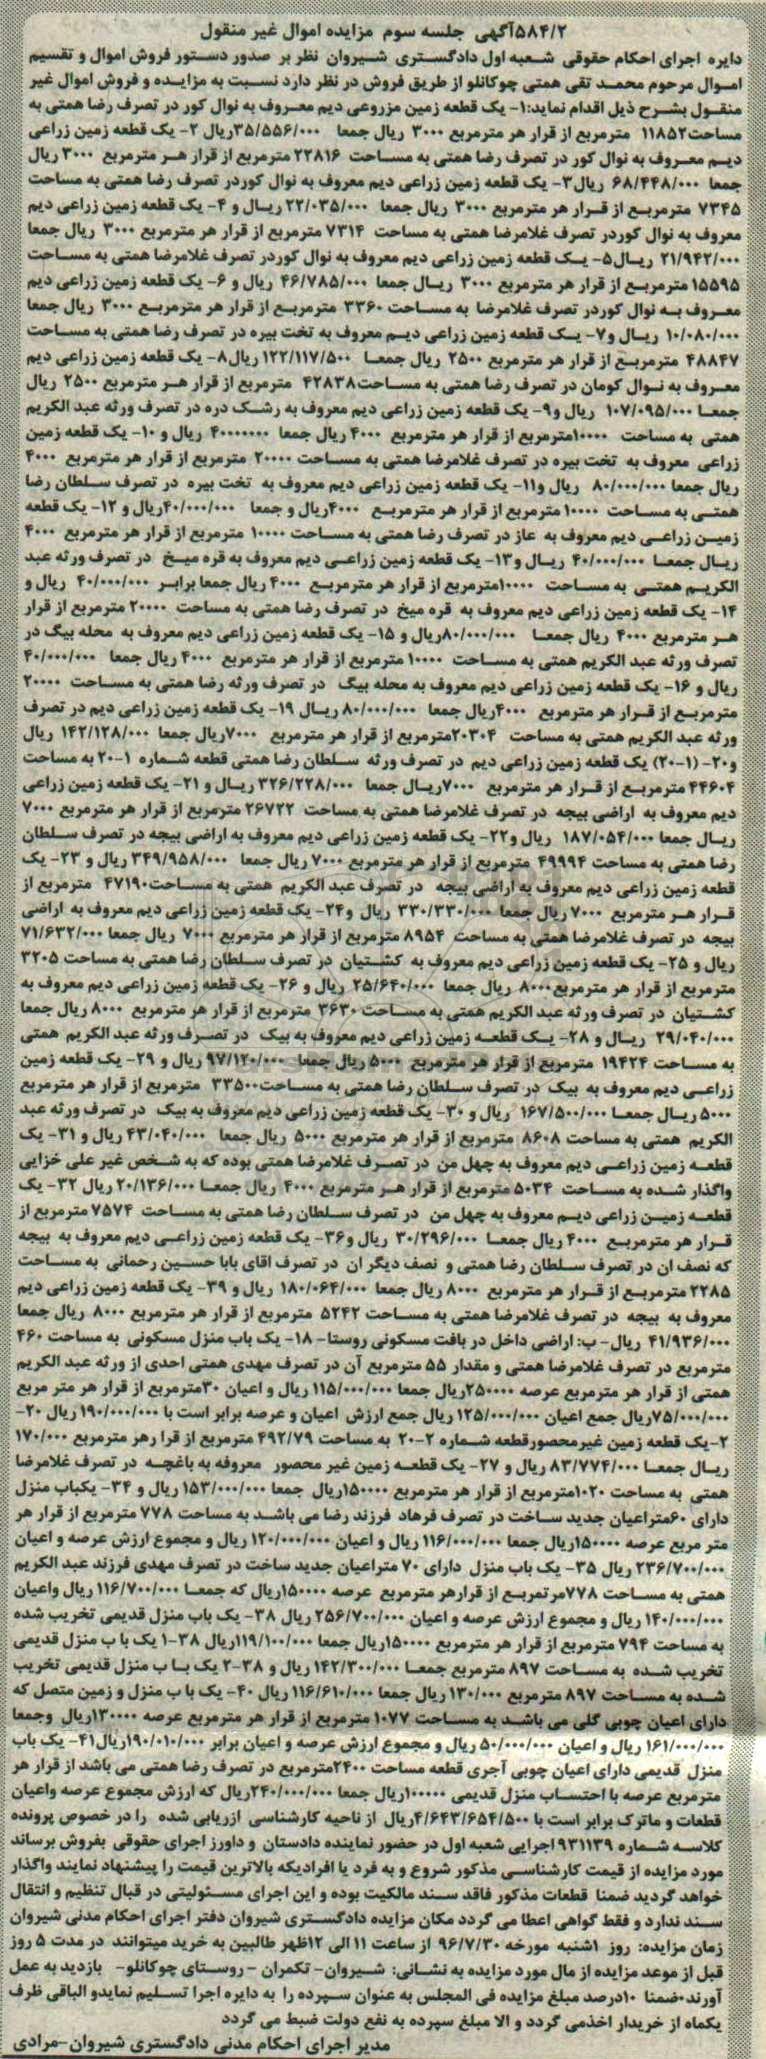 ۵۸۴/۲آگهی جلسه سوم مزایده اموال غیر منقول
دایره اجرای احکام حقوقی شعبه اول دادگستری شیروان نظر بر صدور دستور فروش اموال و تقسیم
اموال مرحوم محمد تقی همتی چوکانلو از طریق فروش در نظر دارد نسبت به مزایده و فروش اموال غیر
منقول بشرح ذیل اقدام نماید:۱- یک قطعه زمین مزروعی دیم معروف به نوال کور در تصرف رضا همتی به
مساحت۱۱۸۵۲ مترمربع از قرار هر مترمربع ۳۰۰۰ ریال جمعا ۳۵/۵۵۶/۰۰۰ریال ۲- یک قطعه زمین زراعی
دیم معروف به نوال کور در تصرف رضا همتی به مساحت ۲۲۸۱۶ مترمربع از قرار هر مترمربع ۳۰۰۰ ریال
جمعا ۶۸/۴۴۸/۰۰۰ ریال۳- یک قطعه زمین زراعی دیم معروف به نوال کوردر تصرف رضا همتی به مساحت
۷۳۴۵ مترمربع از قرار هر مترمربع ۳۰۰۰ ریال جمعا ۲۲/۰۳۵/۰۰۰ ریال و ۴- یک قطعه زمین زراعی دیم
معروف به نوال کوردر تصرف غلامرضا همتی به مساحت ۷۳۱۴ مترمربع از قرار هر مترمربع ۳۰۰۰ ریال جمعا
۲۱/۹۴۲/۰۰۰ ریال۵- یک قطعه زمین زراعی دیم معروف به نوال کوردر تصرف غلامرضا همتی به مساحت
۱۵۵۹۵ مترمربع از قرار هر مترمربع ۳۰۰۰ ریال جمعا ۴۶/۷۸۵/۰۰۰ ریال و ۶- یک قطعه زمین زراعی دیم
معروف به نوال کوردر تصرف غلامرضا به مساحت ۳۳۶۰ مترمربع از قرار هر مترمربع ۳۰۰۰ ریال جمعا
۱۰/۰۸۰/۰۰۰ ریال و۷- یک قطعه زمین زراعی دیم معروف به تخت بیره در تصرف رضا همتی به مساحت
۴۸۸۴۷ مترمربع از قرار هر مترمربع ۲۵۰۰ ریال جمعا ۱۲۲/۱۱۷/۵۰۰ ریال۸- یک قطعه زمین زراعی دیم
معروف به نوال کومان در تصرف رضا همتی به مساحت۴۲۸۳۸ مترمربع از قرار هر مترمربع ۲۵۰۰ ریال
جمعا ۱۰۷/۰۹۵/۰۰۰ ریال و۹- یک قطعه زمین زراعی دیم معروف به رشک دره در تصرف ورثه عبد الکریم
همتی به مساحت ۱۰۰۰۰مترمربع از قرار هر مترمربع ۴۰۰۰ ریال جمعا ۴۰۰۰۰۰۰۰ ریال و ۱۰- یک قطعه زمین
زراعی معروف به تخت بیره در تصرف غلامرضا همتی به مساحت ۲۰۰۰۰ مترمربع از قرار هر مترمربع ۴۰۰۰
ریال جمعا ۸۰/۰۰۰/۰۰۰ ریال و۱۱- یک قطعه زمین زراعی دیم معروف به تخت بیره در تصرف سلطان رضا
همتی به مساحت ۱۰۰۰۰ مترمربع از قرار هر مترمربع ۴۰۰۰ریال و جمعا ۴۰/۰۰۰/۰۰۰ریال و ۱۲- یک قطعه
زمین زراعی دیم معروف به عاز در تصرف رضا همتی به مساحت ۱۰۰۰۰ مترمربع از قرار هر مترمربع ۴۰۰۰
ریال جمعا ۴۰/۰۰۰/۰۰۰ ریال و۱۳- یک قطعه زمین زراعی دیم معروف به قره میخ در تصرف ورثه عبد
الکریم همتی به مساحت ۱۰۰۰۰مترمربع از قرار هر مترمربع ۴۰۰۰ ریال جمعا برابر ۴۰/۰۰۰/۰۰۰ ریال و
۱۴- یک قطعه زمین زراعی دیم معروف به قره میخ در تصرف رضا همتی به مساحت ۲۰۰۰۰ مترمربع از قرار
هر مترمربع ۴۰۰۰ ریال جمعا ۸۰/۰۰۰/۰۰۰ریال و ۱۵- یک قطعه زمین زراعی دیم معروف به محله بیگ در
تصرف ورثه عبد الکریم همتی به مساحت ۱۰۰۰۰ مترمربع از قرار هر مترمربع ۴۰۰۰ ریال جمعا ۴۰/۰۰۰/۰۰۰
ریال و ۱۶- یک قطعه زمین زراعی دیم معروف به محله بیگ در تصرف ورثه رضا همتی به مساحت ۲۰۰۰۰
مترمربع از قرار هر مترمربع ۴۰۰۰ریال جمعا ۸۰/۰۰۰/۰۰۰ ریال ۱۹- یک قطعه زمین زراعی دیم در تصرف
ورثه عبد الکریم همتی به مساحت ۲۰۳۰۴مترمربع از قرار هر مترمربع ۷۰۰۰ریال جمعا ۱۴۲/۱۲۸/۰۰۰ ریال
و۲۰- (۱-۲۰) یک قطعه زمین زراعی دیم در تصرف ورثه سلطان رضا همتی قطعه شماره ۱-۲۰ به مساحت
۴۴۶۰۴ مترمربع از قرار هر مترمربع ۷۰۰۰ریال جمعا ۳۲۶/۲۲۸/۰۰۰ ریال و ۲۱- یک قطعه زمین زراعی
دیم معروف به اراضی بیجه در تصرف غلامرضا همتی به مساحت ۲۶۷۲۲ مترمربع از قرار هر مترمربع ۷۰۰۰
ریال جمعا ۱۸۷/۰۵۴/۰۰۰ ریال و۲۲- یک قطعه زمین زراعی دیم معروف به اراضی بیجه در تصرف سلطان
رضا همتی به مساحت ۴۹۹۹۴ مترمربع از قرار هر مترمربع ۷۰۰۰ ریال جمعا ۳۴۹/۹۵۸/۰۰۰ ریال و ۲۳- یک
قطعه زمین زراعی دیم معروف به اراضی بیجه در تصرف عبد الکریم همتی به مساحت۴۷۱۹۰ مترمربع از
قرار هر مترمربع ۷۰۰۰ ریال جمعا ۳۳۰/۳۳۰/۰۰۰ ریال و۲۴- یک قطعه زمین زراعی دیم معروف به اراضی
بیجه در تصرف غلامرضا همتی به مساحت ۸۹۵۴ مترمربع از قرار هر مترمربع ۷۰۰۰ ریال جمعا ۷۱/۶۳۲/۰۰۰
ریال و ۲۵- یک قطعه زمین زراعی دیم معروف به کشتیان در تصرف سلطان رضا همتی به مساحت ۳۲۰۵
مترمربع از قرار هر مترمربع۸۰۰۰ ریال جمعا ۲۵/۶۴۰/۰۰۰ ریال و ۲۶- یک قطعه زمین زراعی دیم معروف به
کشتیان در تصرف ورثه عبد الکریم همتی به مساحت ۳۶۳۰ مترمربع از قرار هر مترمربع ۸۰۰۰ ریال جمعا
۲۹/۰۴۰/۰۰۰ ریال و ۲۸- یک قطعه زمین زراعی دیم معروف به بیک در تصرف ورثه عبد الکریم همتی
به مساحت ۱۹۴۲۴ مترمربع از قرار هر مترمربع ۵۰۰۰ ریال جمعا ۹۷/۱۲۰/۰۰۰ ریال و ۲۹- یک قطعه زمین
زراعی دیم معروف به بیک در تصرف سلطان رضا همتی به مساحت۳۳۵۰۰ مترمربع از قرار هر مترمربع
۵۰۰۰ ریال جمعا ۱۶۷/۵۰۰/۰۰۰ ریال و ۳۰- یک قطعه زمین زراعی دیم معروف به بیک در تصرف ورثه عبد
الکریم همتی به مساحت ۸۶۰۸ مترمربع از قرار هر مترمربع ۵۰۰۰ ریال جمعا ۴۳/۰۴۰/۰۰۰ ریال و ۳۱- یک
قطعه زمین زراعی دیم معروف به چهل من در تصرف غلامرضا همتی بوده که به شخص غیر علی خزایی
واگذار شده به مساحت ۵۰۳۴ مترمربع از قرار هر مترمربع ۴۰۰۰ ریال جمعا ۲۰/۱۳۶/۰۰۰ ریال ۳۲- یک
قطعه زمین زراعی دیم معروف به چهل من در تصرف سلطان رضا همتی به مساحت ۷۵۷۴ مترمربع از
قرار هر مترمربع ۴۰۰۰ ریال جمعا ۳۰/۲۹۶/۰۰۰ ریال و۳۶- یک قطعه زمین زراعی دیم معروف به بیجه
که نصف ان در تصرف سلطان رضا همتی و نصف دیگر ان در تصرف اقای بابا حسین رحمانی به مساحت
۲۲۸۵ مترمربع از قرار هر مترمربع ۸۰۰۰ ریال جمعا ۱۸۰/۰۶۴/۰۰۰ ریال و ۳۹- یک قطعه زمین زراعی دیم
معروف به بیجه در تصرف غلامرضا همتی به مساحت ۵۲۴۲ مترمربع از قرار هر مترمربع ۸۰۰۰ ریال جمعا
۴۱/۹۳۶/۰۰۰ ریال- ب: اراضی داخل در بافت مسکونی روستا- ۱۸- یک باب منزل مسکونی به مساحت ۴۶۰
مترمربع در تصرف غلامرضا همتی و مقدار ۵۵ مترمربع آن در تصرف مهدی همتی احدی از ورثه عبد الکریم
همتی از قرار هر مترمربع عرصه ۲۵۰۰۰۰ریال جمعا ۱۱۵/۰۰۰/۰۰۰ ریال و اعیان ۳۰مترمربع از قرار هر متر مربع
۷۵/۰۰۰/۰۰۰ریال جمع اعیان ۱۲۵/۰۰۰/۰۰۰ ریال جمع ارزش اعیان و عرصه برابر است با ۱۹۰/۰۰۰/۰۰۰ ریال ۲۰-
۲-یک قطعه زمین غیرمحصورقطعه شماره ۲-۲۰ به مساحت ۴۹۲/۷۹ مترمربع از قرا رهر مترمربع ۱۷۰/۰۰۰
ریال جمعا ۸۳/۷۷۴/۰۰۰ ریال و ۲۷- یک قطعه زمین غیر محصور معروفه به باغچه در تصرف غلامرضا
همتی به مساحت ۱۰۲۰مترمربع از قرار هر مترمربع ۱۵۰۰۰۰ریال جمعا ۱۵۳/۰۰۰/۰۰۰ ریال و ۳۴- یکباب منزل
دارای ۶۰متراعیان جدید ساخت در تصرف فرهاد فرزند رضا می باشد به مساحت ۷۷۸ مترمربع از قرار هر
متر مربع عرصه ۱۵۰۰۰۰ریال جمعا ۱۱۶/۰۰۰/۰۰۰ ریال و اعیان ۱۲۰/۰۰۰/۰۰۰ ریال و مجموع ارزش عرصه و اعیان
۲۳۶/۷۰۰/۰۰۰ ریال ۳۵- یک باب منزل دارای ۷۰ متراعیان جدید ساخت در تصرف مهدی فرزند عبد الکریم
همتی به مساحت ۷۷۸مرتمربع از قرارهر مترمربع عرصه ۱۵۰۰۰۰ریال که جمعا ۱۱۶/۷۰۰/۰۰۰ ریال واعیان
۱۴۰/۰۰۰/۰۰۰ ریال و مجموع ارزش عرصه و اعیان ۲۵۶/۷۰۰/۰۰۰ ریال ۳۸- یک باب منزل قدیمی تخریب شده
به مساحت ۷۹۴ مترمربع از قرار هر مترمربع ۱۵۰۰۰۰ریال جمعا ۱۱۹/۱۰۰/۰۰۰ریال ۳۸-۱ یک با ب منزل قدیمی
تخریب شده به مساحت ۸۹۷ مترمربع جمعا ۱۴۲/۳۰۰/۰۰۰ ریال و ۳۸-۲ یک با ب منزل قدیمی تخریب
شده به مساحت ۸۹۷ مترمربع ۱۳۰/۰۰۰ ریال جمعا ۱۱۶/۶۱۰/۰۰۰ ریال ۴۰- یک با ب منزل و زمین متصل که
دارای اعیان چوبی گلی می باشد به مساحت ۱۰۷۷ مترمربع از قرار هر مترمربع عرصه ۱۳۰۰۰۰ریال وجمعا
۱۶۱/۰۰۰/۰۰۰ ریال و اعیان ۵۰/۰۰۰/۰۰۰ ریال و مجموع ارزش عرصه و اعیان برابر ۱۹۰/۰۱۰/۰۰۰ریال۴۱- یک باب
منزل قدیمی دارای اعیان چوبی آجری قطعه مساحت ۲۴۰۰مترمربع در تصرف رضا همتی می باشد از قرار هر
مترمربع عرصه با احتساب منزل قدیمی ۱۰۰۰۰۰ریال جمعا ۲۴۰/۰۰۰/۰۰۰ریال که ارزش مجموع عرصه واعیان
قطعات و ماترک برابر است با ۴/۶۴۳/۶۵۴/۵۰۰ریال از ناحیه کارشناسی ازریابی شده را در خصوص پرونده
کلاسه شماره ۹۳۱۱۳۹ اجرایی شعبه اول در حضور نماینده دادستان و داورز اجرای حقوقی بفروش برساند
مورد مزایده از قیمت کارشناسی مذکور شروع و به فرد یا افرادیکه بالاترین قیمت را پیشنهاد نمایند واگذار
خواهد گردید ضمنا قطعات مذکور فاقد سند مالکیت بوده و این اجرای مسئولیتی در قبال تنظیم و انتقال
سند ندارد و فقط گواهی اعطا می گردد مکان مزایده دادگستری شیروان دفتر اجرای احکام مدنی شیروان
زمان مزایده: روز ۱شنبه مورخه ۹۶/۷/۳۰ از ساعت ۱۱ الی ۱۲ظهر طالبین به خرید میتوانند در مدت ۵ روز
قبل از موعد مزایده از مال مورد مزایده به نشانی: شیروان- تکمران - روستای چوکانلو- بازدید به عمل
آورند.ضمنا ۱۰درصد مبلغ مزایده فی المجلس به عنوان سپرده را به دایره اجرا تسلیم نمایدو الباقی ظرف
یکماه از خریدار اخذمی گردد و الا مبلغ سپرده به نفع دولت ضبط می گردد
مدیر اجرای احکام مدنی دادگستری شیروان-مرادی